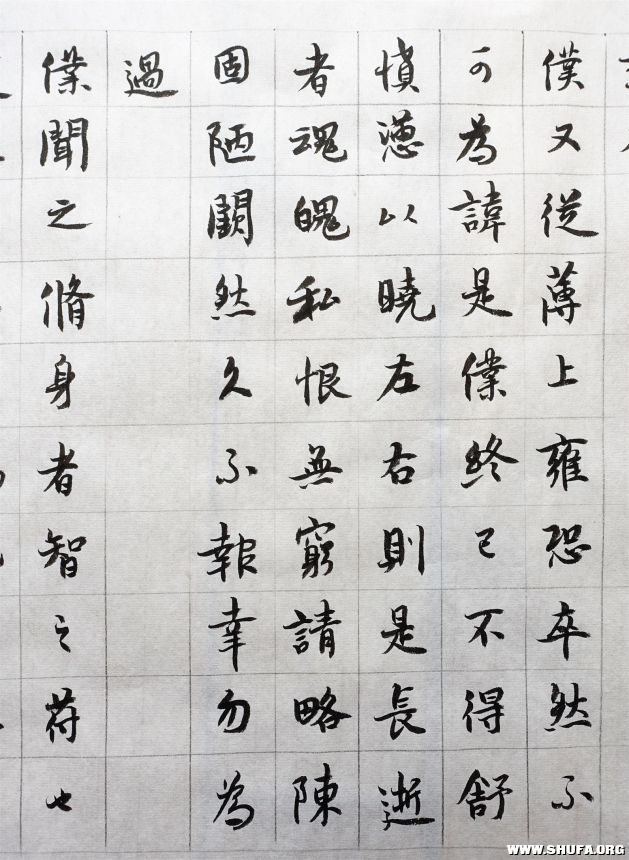 僕又従薄上雍恐卒然不
可為諱是僕終已不得舒
憤懣以曉左右則是長逝
者魂魄私恨無窮請略陳
固陋闕然久不報幸勿為
過
僕聞之脩身者智之符也
WWW.SHUFA.ORG